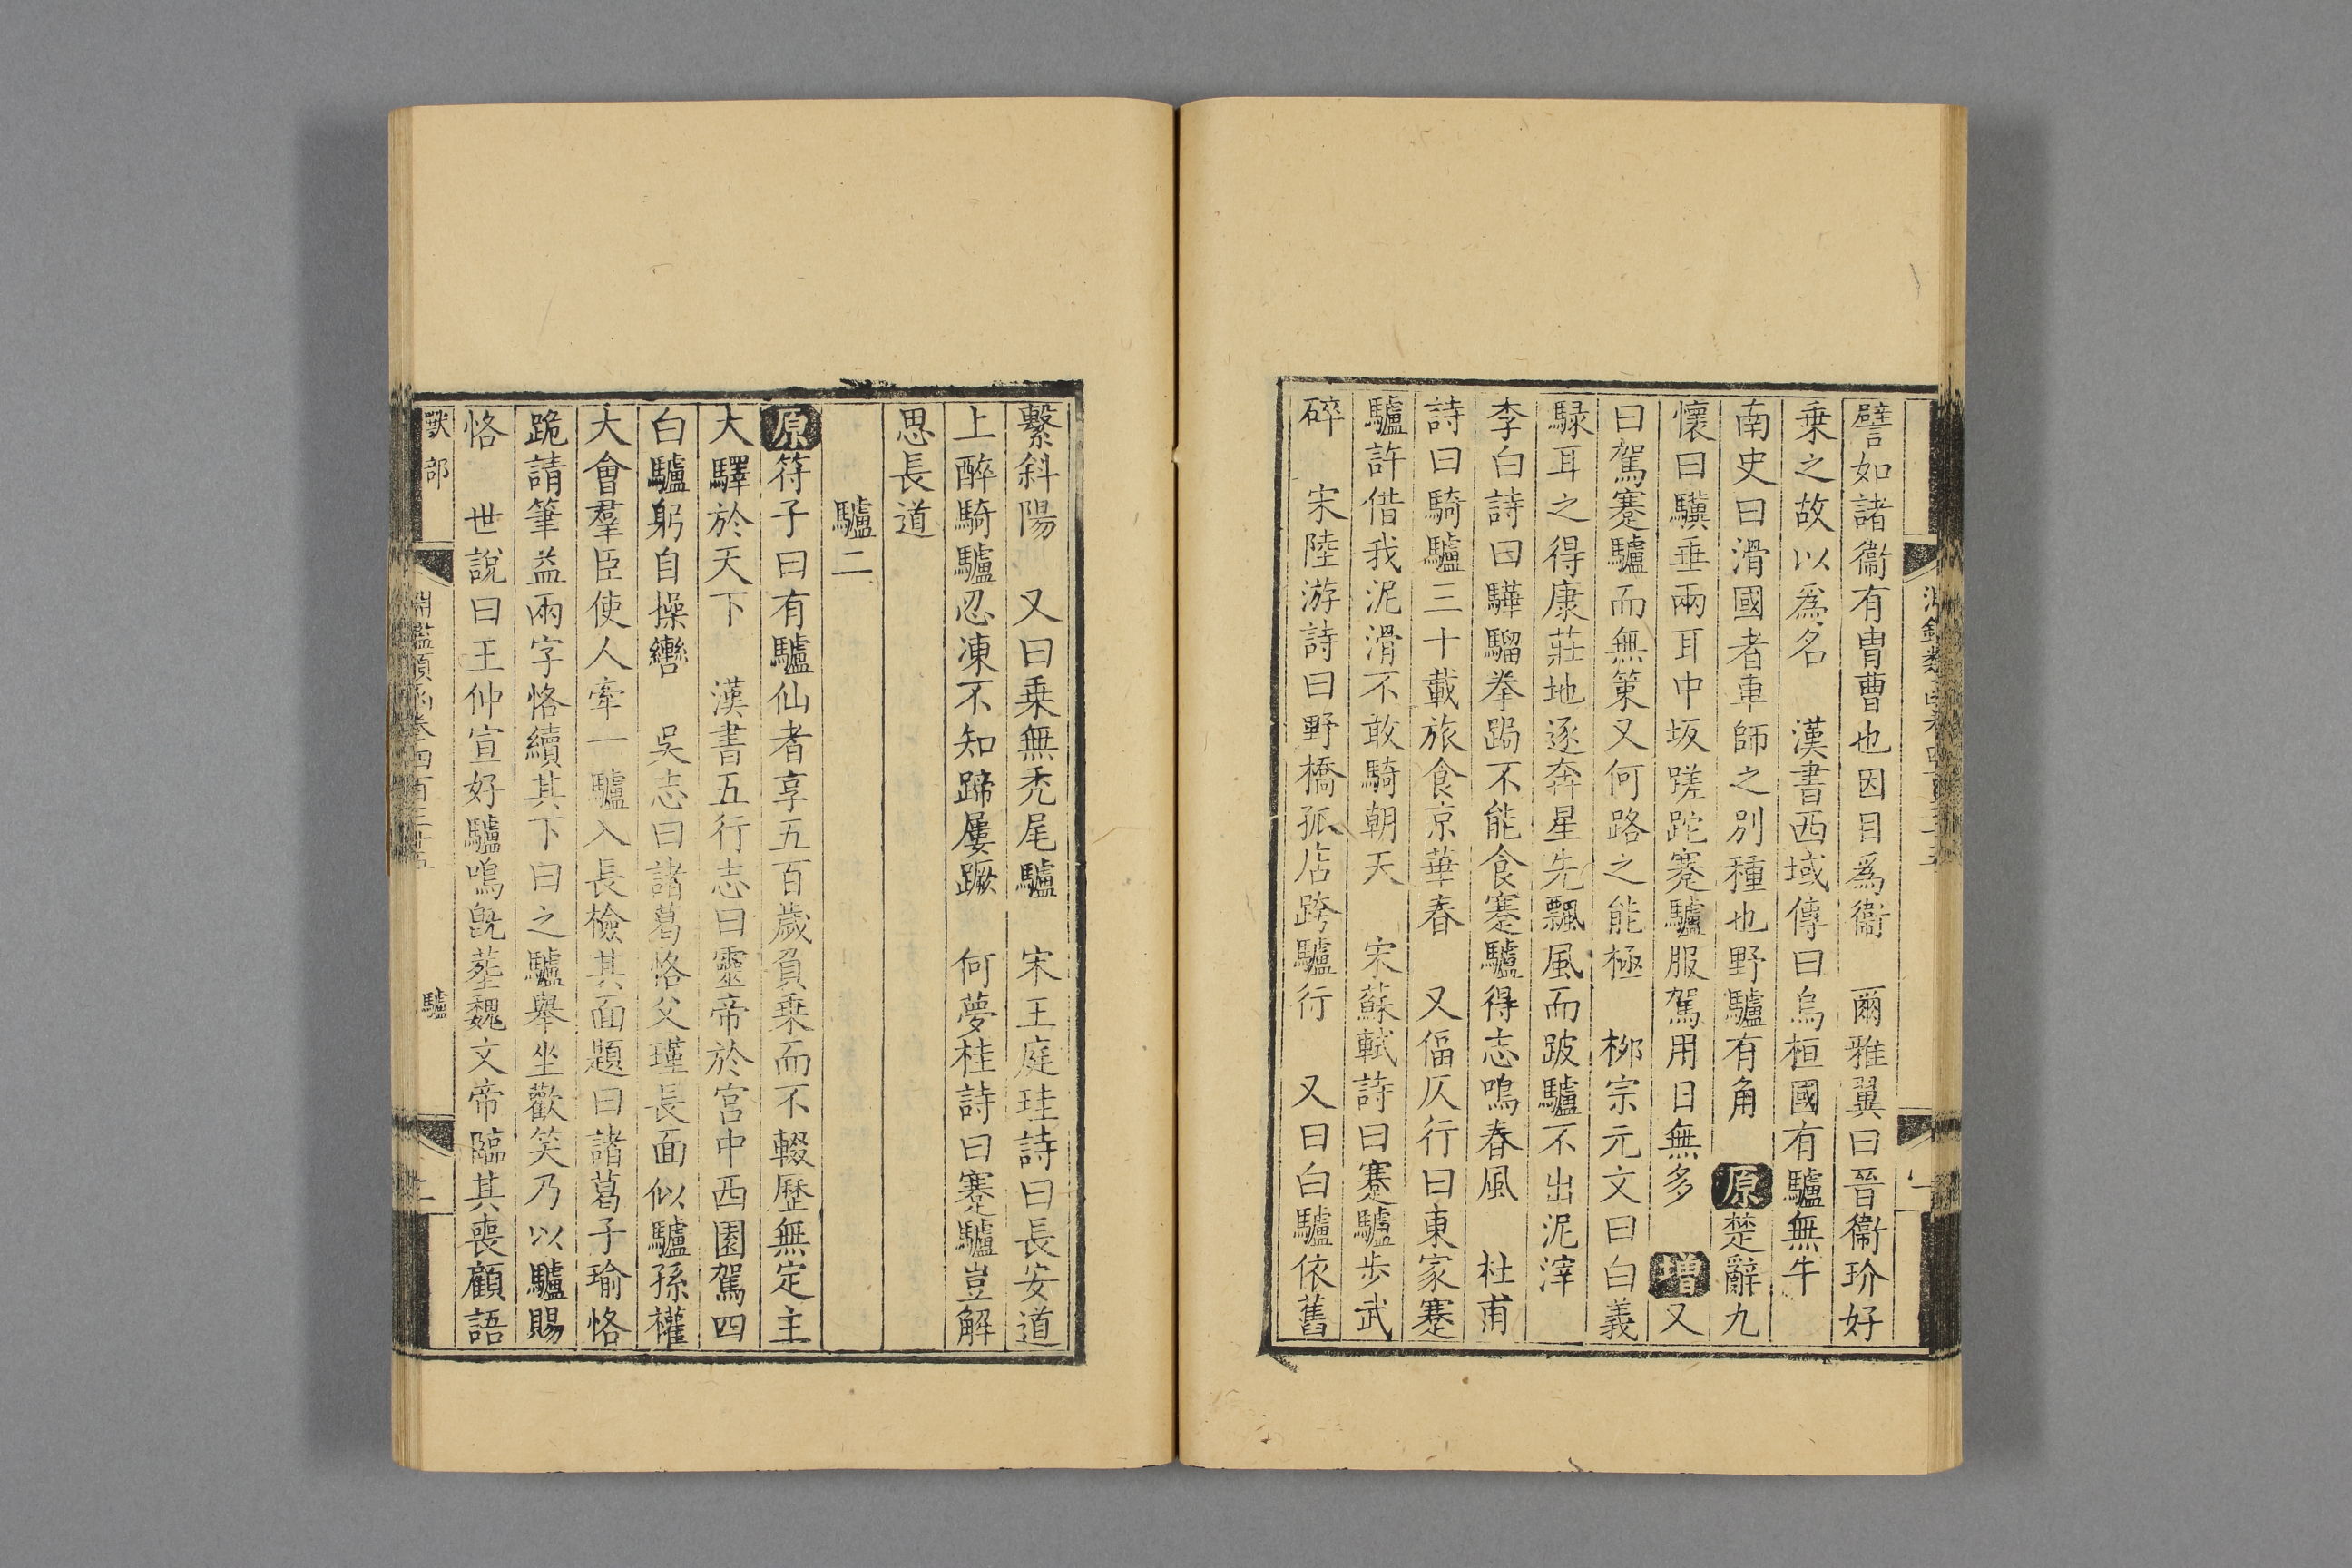 譬如諸衞有胄曹也因目爲衞　爾雅翼曰晉衞玠好
乗之故以爲名　漢書西域傳曰烏桓國有驢無牛
南史曰滑國者車師之別種也野驢有角　原楚辭九
懷曰驥垂兩耳中坂蹉跎蹇驢服駕用日無多　增又
曰駕蹇驢而無策又何路之能極　柳宗元文曰白義
騄耳之得康莊地逐奔星先飄風而跛驢不出泥滓
李白詩曰驊騮拳跼不能食蹇驢得志鳴春風　杜甫
詩曰騎驢三十載旅食京華春　又偪仄行曰東家蹇
驢許借我泥滑不敢騎朝天　宋蘇軾詩曰蹇驢歩武
碎　宋陸游詩曰野橋孤店跨驢行　又曰白驢依舊
繫斜陽　又曰乗無禿尾驢　宋王庭珪詩曰長安道
上醉騎驢忍凍不知蹄屢蹶　何夢桂詩曰蹇驢豈解
思長道
驢二
原符子曰有驢仙者享五百歲負乗而不輟歷無定主
大驛於天下　漢書五行志曰靈帝於宮中西園駕四
白驢躬自操轡　吳志曰諸葛恪父瑾長面似驢孫權
大會羣臣使人牽一驢入長檢其面題曰諸葛子瑜恪
跪請筆益兩字恪續其下曰之驢舉坐歡笑乃以驢賜
恪　世說曰王仲宣好驢鳴旣葬魏文帝臨其喪顧語
獸部
淵鑑類函卷四百三十五
驢